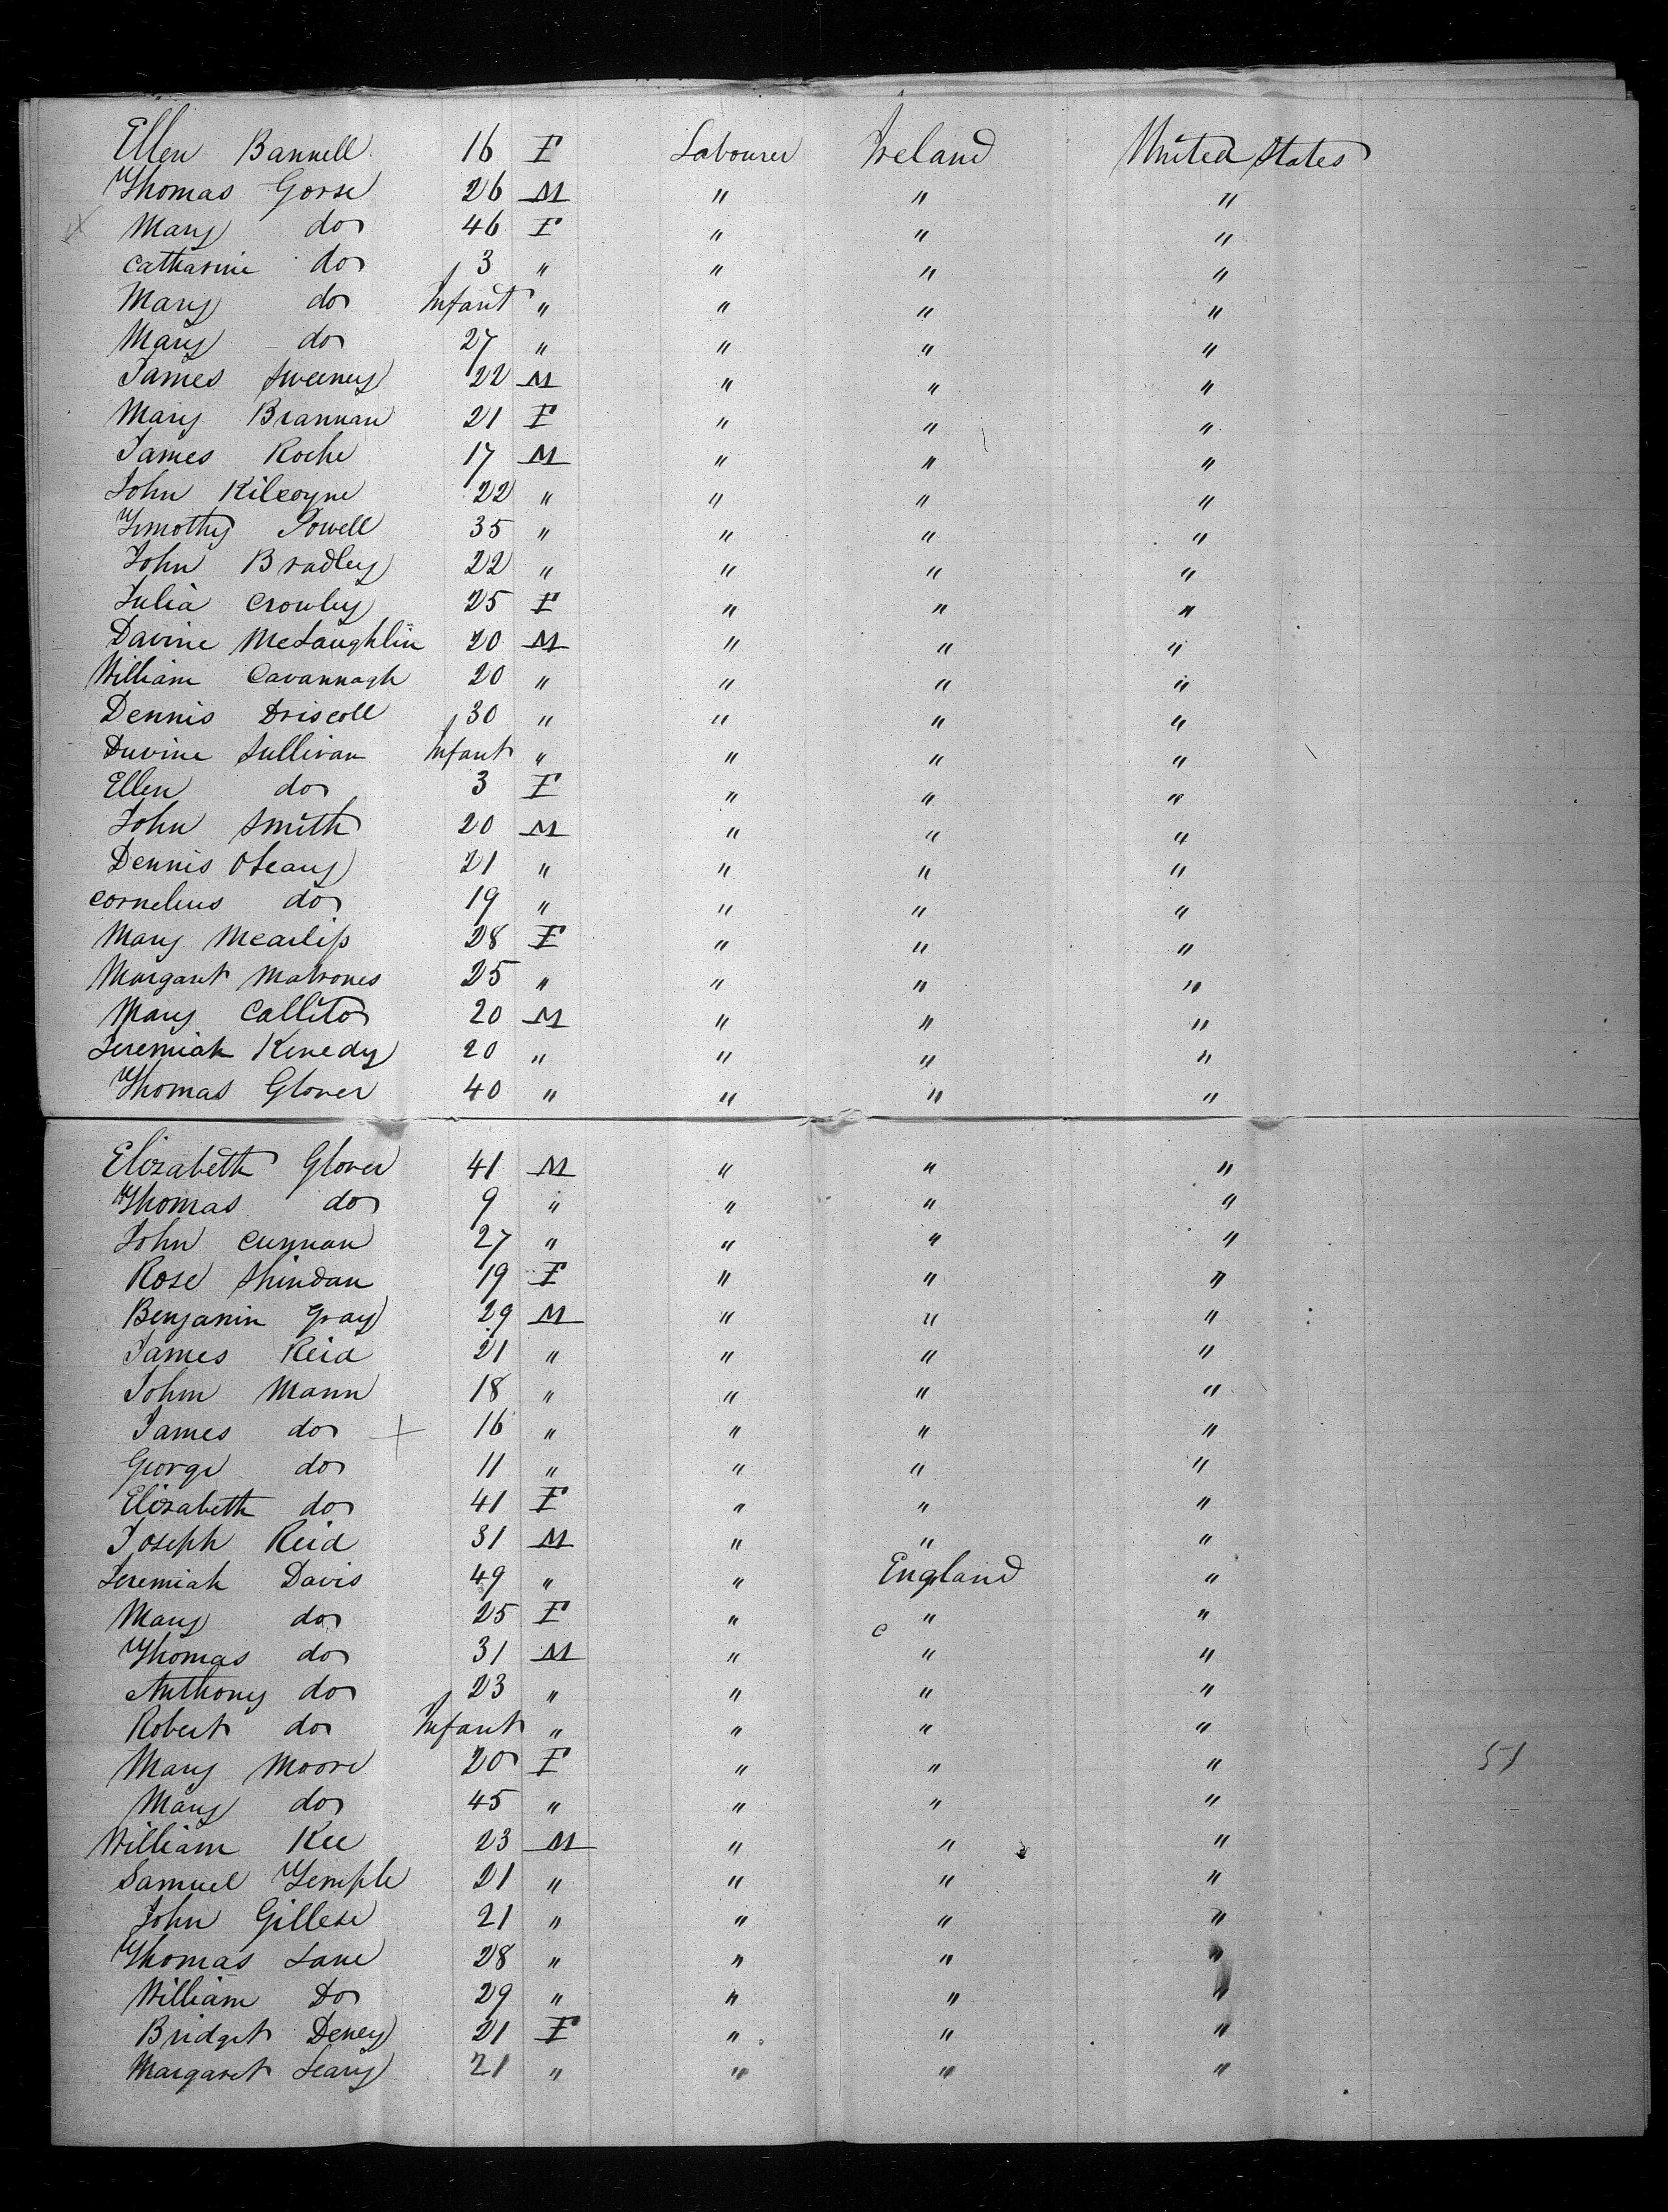 Ellen Bannell 16 F Labourer Ireland United States
Thomas Gorse 26 M " " "
Mary do 46 F " " "
Catharine do 3 " " " "
Mary do Infant " " " "
Mary do 27 " " " "
James Sweeney 22 M " " "
Mary Brannan 21 F " " "
James Roche 17 M " " "
John Kilcoyne 22 " " " "
Timothy Powell 35 " " " "
John Bradley 22 " " " "
Julia Crowley 25 F " " "
Davine McLaughlin 20 M " " "
William Cavannagh 20 " " " "
Dennis Driscoll 30 " " " "
Duvine Sullivan Infant " " " "
Ellen do 3 F " " "
John Smith 20 M " " "
Dennis OLeary 21 " " " "
Cornelius do 19 " " " "
Mary 28 F " " "
Margaret Matrones 25 " " " "
Mary Callito 20 M " " "
Jeremiah Kenedy 20 " " " "
Thomas Glover 40 " " " "
Elizabeth Glover 41 M " " "
Thomas do 9 " " " "
John Cunnan 27 " " " "
Rose Shindan 19 F " " "
Benjamin Gray 29 M " " "
James Reid 21 " " " "
John Mann 18 " " " "
James do 16 " " " "
George do 11 " " " "
Elizabeth do 41 F " " "
Joseph Reid 31 M " " "
Jeremiah Davis 49 " " England "
Mary do 25 F " " "
Thomas do 31 M " " "
Anthony do 23 " " " "
Robert do Infant " " " "
Mary Moore 20 F " " " 51
Mary do 45 " " " "
William Kee 23 M " " "
Samuel Temple 21 " " " "
John Gillese 21 " " " "
Thomas Lane 28 " " " "
William Do 29 " " " "
Bridget Deney 21 F " " "
Margaret Leary 21 " " " "